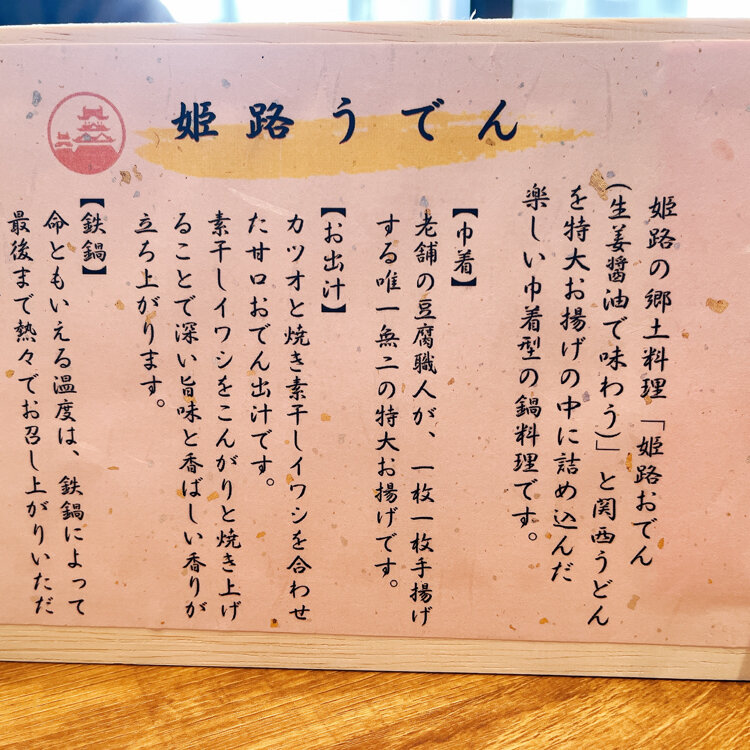 姫路うでん
姫路の郷土料理「姫路おでん
(生姜醤油で味わう)」と関西うどん
を特大お揚げの中に詰め込んだ
楽しい巾着型の鍋料理です。
【巾着】
老舗の豆腐職人が、一枚一枚手揚げ
する唯一無二の特大お揚げです。
【お出汁】
カツオと焼き素干しイワシを合わせ
た甘口おでん出汁です。
素干しイワシをこんがりと焼き上げ
ることで深い旨味と香ばしい香りが
立ち上がります。
【鉄鍋】
命ともいえる温度は、鉄鍋によって
最後まで熱々でお召し上がりいただ